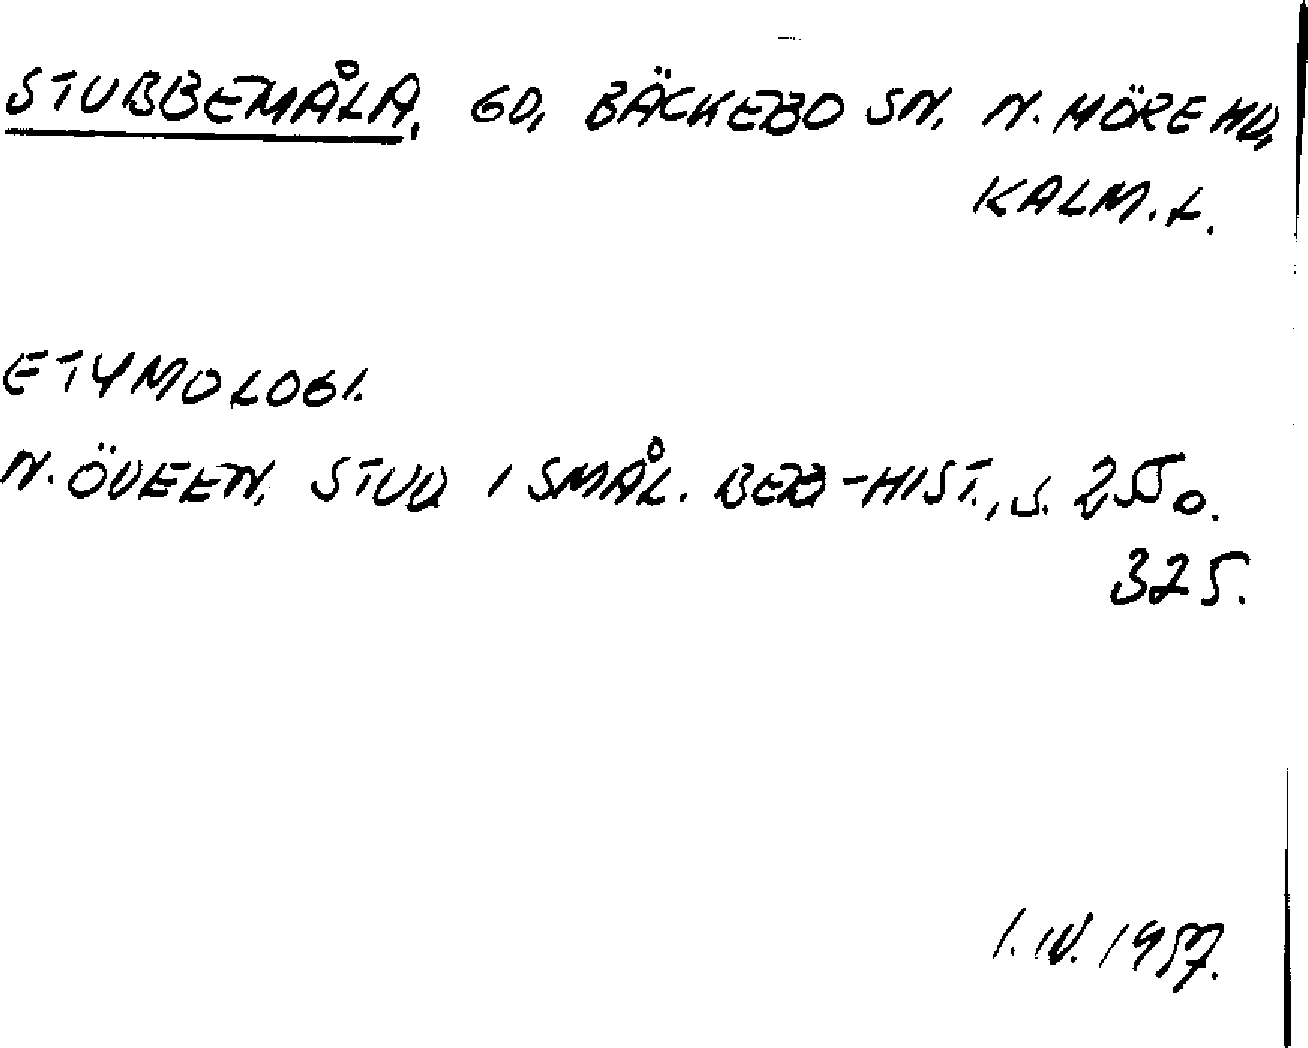 STUBBEMÅLA, GD, BÄCKEBO SN, N. MÖRE HD,
KALM. L.
ETYMOLOGI.
N. ÖDEEN, STUD I SMÅL. BEB-HIST., S. 255 o.
325.
1. IV. 1957.